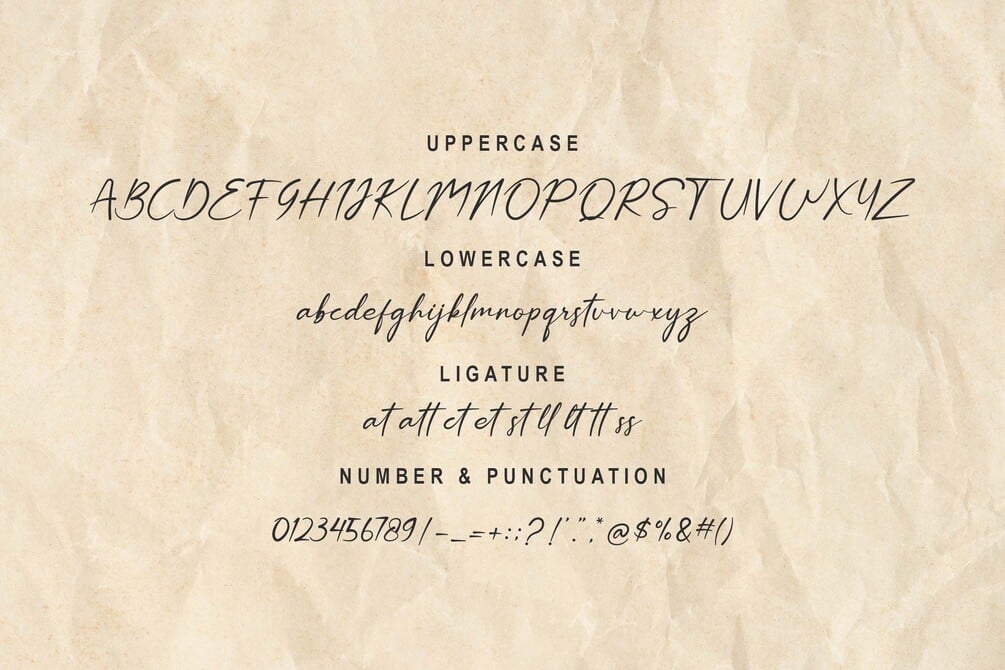 UPPERCASE
ABCDEFGHIJKLMNOPQRSTUVWXYZ
LOWERCASE
abcdefghijklmnopqrstuvwxyz
LIGATURE
at att ct et st ll lt tt ss
NUMBER & PUNCTUATION
0123456789/-_=+:;?!'",.*@$%&#()